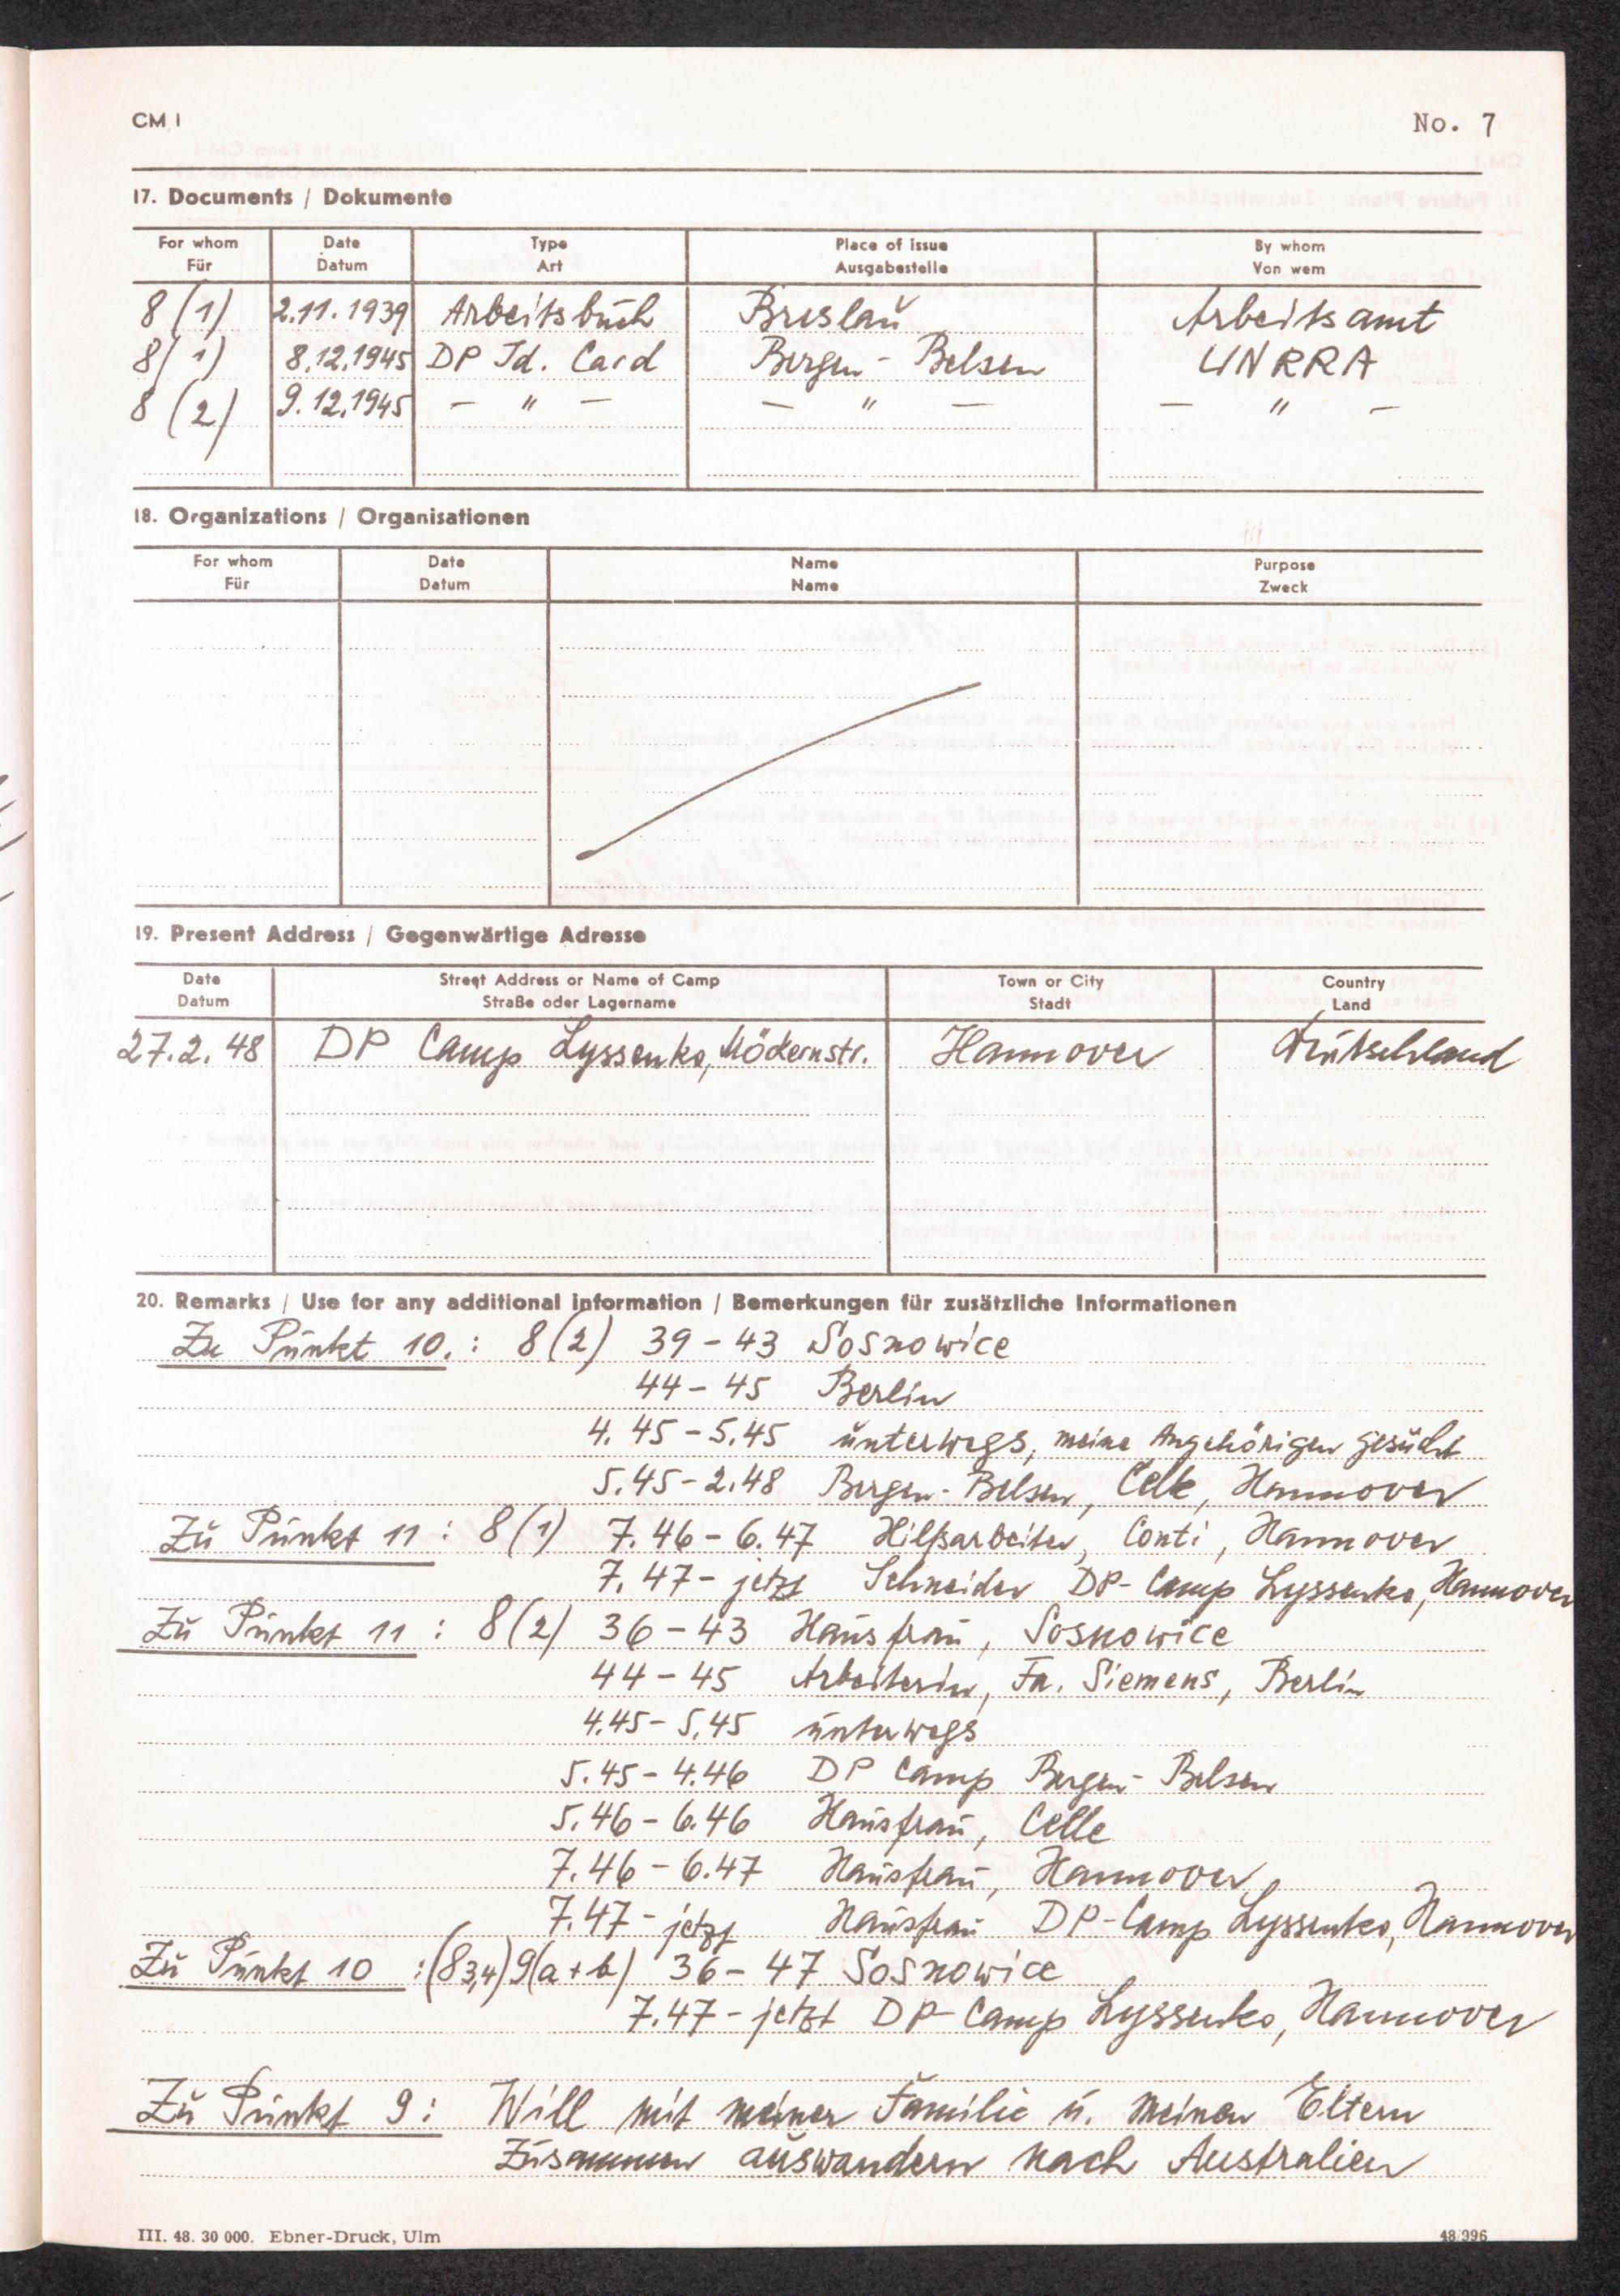 CM I
No. 7
17. Documents / Dokumente
For whom Date Type Place of issue By whom
Für Datum Art Ausgabestelle Von wem
8 (1) 2.11.1939 Arbeitsbuch Breslau Arbeitsamt
8 (1) 8.12.1945 DP Id. Card Bergen - Belsen UNRRA
8 (2) 9.12.1945 — " — — " — — " —
18. Organizations / Organisationen
For whom Date Name Purpose
Für Datum Name Zweck
19. Present Address / Gegenwärtige Adresse
Date Street Address or Name of Camp Town or City Country
Datum Straße oder Lagername Stadt Land
27.2.48 DP Camp Lyssenko, Möckernstr. Hannover Deutschland
20. Remarks / Use for any additional information / Bemerkungen für zusätzliche Informationen
Zu Punkt 10. : 8 (2) 39 - 43 Sosnowice
44 - 45 Berlin
4. 45 - 5.45 unterwegs, meine Angehörigen gesucht
5.45 - 2.48 Bergen - Belsen, Celle, Hannover
Zu Punkt 11 : 8 (1) 7.46 - 6.47 Hilfsarbeiter, Conti, Hannover
7.47 - jetzt Schneider DP-Camp Lyssenko, Hannover
Zu Punkt 11 : 8 (2) 36 - 43 Hausfrau, Sosnowice
44 - 45 Arbeiterin, Fa. Siemens, Berlin
4.45 - 5.45 unterwegs
5.45 - 4.46 DP Camp Bergen - Belsen
5.46 - 6.46 Hausfrau, Celle
7.46 - 6.47 Hausfrau, Hannover
7.47 - jetzt Hausfrau DP-Camp Lyssenko, Hannover
Zu Punkt 10 : (8 3,4) 9(a + b) 36 - 47 Sosnowice
7.47 - jetzt DP-Camp Lyssenko, Hannover
Zu Punkt 9 : Will mit meiner Familie u. meinen Eltern
zusammen auswandern nach Australien
III. 48. 30 000. Ebner-Druck, Ulm
48/996